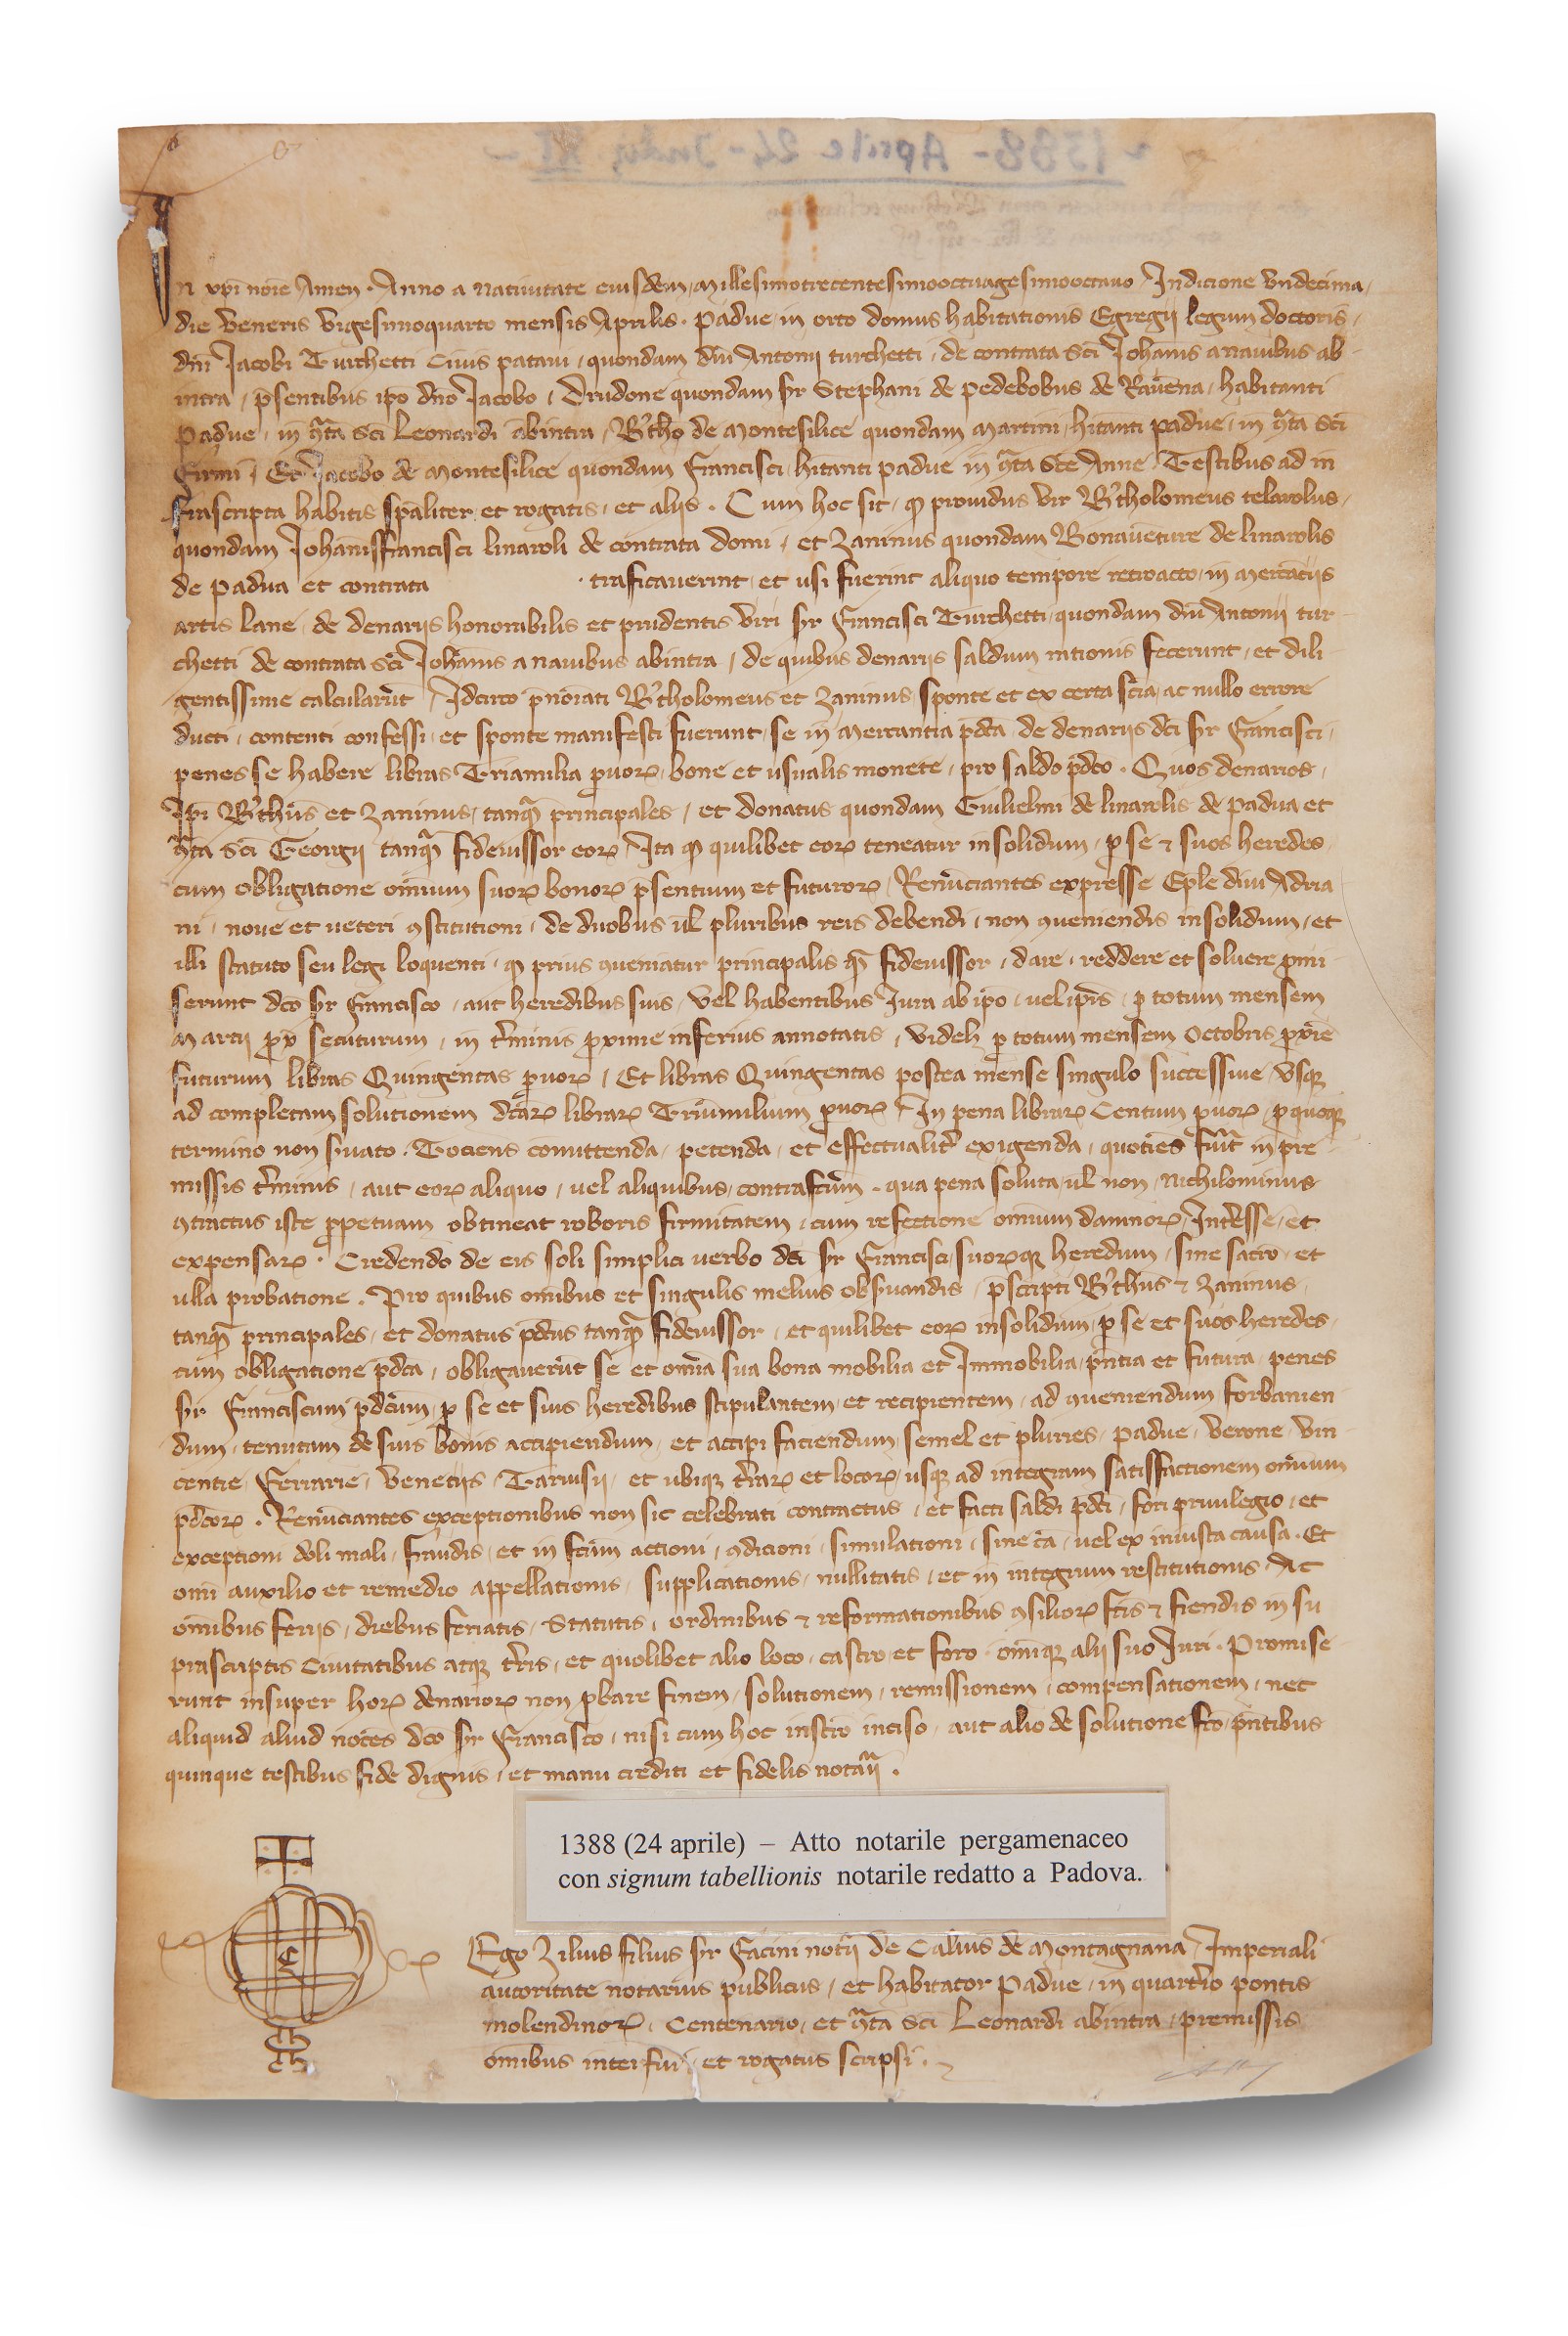 ~ 1388 - Aprile 24 - Indiz. XI ~
In xpi noie Amen. Anno a natiuitate eiusdem millesimotrecentesimooctuagesimooctauo Indicione vndecima,
die veneris vigesimoquarto mensis Aprilis. Padue in orto domus habitationis Egregij legum doctoris,
dni Jacobi Turchetti Ciuis pataui, quondam dni Antonij turchetti, de contrata sci Johanis a nauibus ab
intra, psentibus ipo dno Jacobo, Drudone quondam sr Stephani de pedebobus de Rauena, habitanti
Padue, in 9ta sci Leonardi abintra, Btho de Montesilice quondam Martini, hitanti padue, in 9ta sci
Firmi, Et Jacobo de Montesilice quondam Francisci, hitanti padue in 9ta sce Anne. Testibus ad in
frascripta habitis spaliter et rogatis, et alijs. Cum hoc sit, q prouidus vir Btholomeus telarolus,
quondam Johanisfrancisci linaroli de contrata domi, et Zaninus quondam Bonauenture de linarolis
de padua et contrata . traficauerint, et usi fuerint aliquo tempore retroacto, in mercatijs
artis lane, de denarijs honorabilis et prudentis viri sr Francisci Turchetti, quondam dni Antonij tur
chetti de contrata sci Johanis a nauibus abintra, de quibus denarijs saldum rationis fecerunt, et dili
gentissime calcularut, Idcirco pnoiati Btholomeus et Zaninus, sponte et ex certa scia, ac nullo errore
ducti, contenti confessi, et sponte manifesti fuerunt, se in mercantia pdca, de denarijs dci sr Francisci,
penes se habere libras Triamilia puor, bone et usualis monete, pro saldo pdco. Quos denarios,
Ipi Bthus et Zaninus, tanq principales, et donatus quondam Guilielmi de linarolis de padua et
9ta sci Georgij tanq fideiussor eor, Ita q quilibet eor teneatur insolidum, p se & suos heredes,
cum obligatione oium suor bonor psentium et futuror, Renuciantes expresse Eple diui Adria
ni, noue et ueteri 9stitutioni, de duobus ul pluribus reis debendi, non 9ueniendis insolidum, et
illi statuto seu legi loquenti, q prius 9ueniatur principalis q fideiussor, dare, reddere et soluere pmi
serunt dco sr Francisco, aut heredibus suis, vel habentibus Jura ab ipo, uel ipis, p totum mensem
Marcij px secuturum, in tminis pxime inferius annotatis, videlz p totum mensem Octobris pxie
futurum libras Quingentas puor, Et libras Quingentas postea mense singulo successiue, vsq
ad completam solutionem dcar librar Triumilium puor, In pena librar Centum puor, p quoq
termino non suato. Tociens comittenda, petenda, et effectualit exigenda, quoties fuit in pre
missis tminis, aut eor aliquo, uel aliquibus, contrafcum. qua pena soluta, ul non, Nichilominus
9tractus iste ppetuam obtineat roboris firmitatem, cum refectione oium damnor, Intesse, et
expensar. Credendo de eis soli simplici uerbo dci sr Francisci, suorq heredum, sine sacro, et
ulla probatione. Pro quibus oibus et singulis melius obsuandis, pscripti Bthus & Zaninus,
tanq principales, et donatus pdcus tanq fideiussor, et quilibet eor insolidum, p se et suos heredes,
cum obligatione pdca, obligauerut se et omia sua bona mobilia et Immobilia, pntia et futura, penes
sr Franciscum pdcum, p se et suis heredibus stipulantem, et recipientem, ad 9ueniendum forbanien
dum, tenutam de suis bonis accipiendum, et accipi faciendum, semel et pluries, padue, verone, vin
centie, Ferrarie, venecijs, Taruisij, et ubiq trar et locor, usq ad integram satisfactionem oium
pdcor. Renuciantes exceptionibus non sic celebrati contractus, et facti saldi pdci, fori priuilegio, et
exceptioni doli mali, fraudis, et in fcum actioni, 9dicioni, simulationi, sine ca, uel ex iniusta causa. Et
omi auxilio et remedio appellationis, supplicationis, nullitatis, et in integrum restitutionis. Ac
omibus ferijs, diebus feriatis, Statutis, ordinibus & reformationibus 9silior fcis & fiendis in su
prascriptis Ciuitatibus atq tris, et quolibet alio loco, castro et foro, oimq alij suo Iuri. Promise
runt insuper hor denarior non pbare finem, solutionem, remissionem, compensationem, nec
aliquid aliud noces dco sr Francisco, nisi cum hoc instro inciso, aut alio de solutione fco, pntibus
quinque testibus fide dignis, et manu crediti et fidelis notarij.
1388 (24 aprile) – Atto notarile pergamenaceo
con signum tabellionis notarile redatto a Padova.
Ego Zilius filius sr Facini notij de Calius de Montagnana, Imperiali
autoritate notarius publicus, et habitator Padue, in quarterio pontis
molendinor, Centenario, et 9ta sci Leonardi abintra, premissis
omibus interfui, et rogatus scripsi.